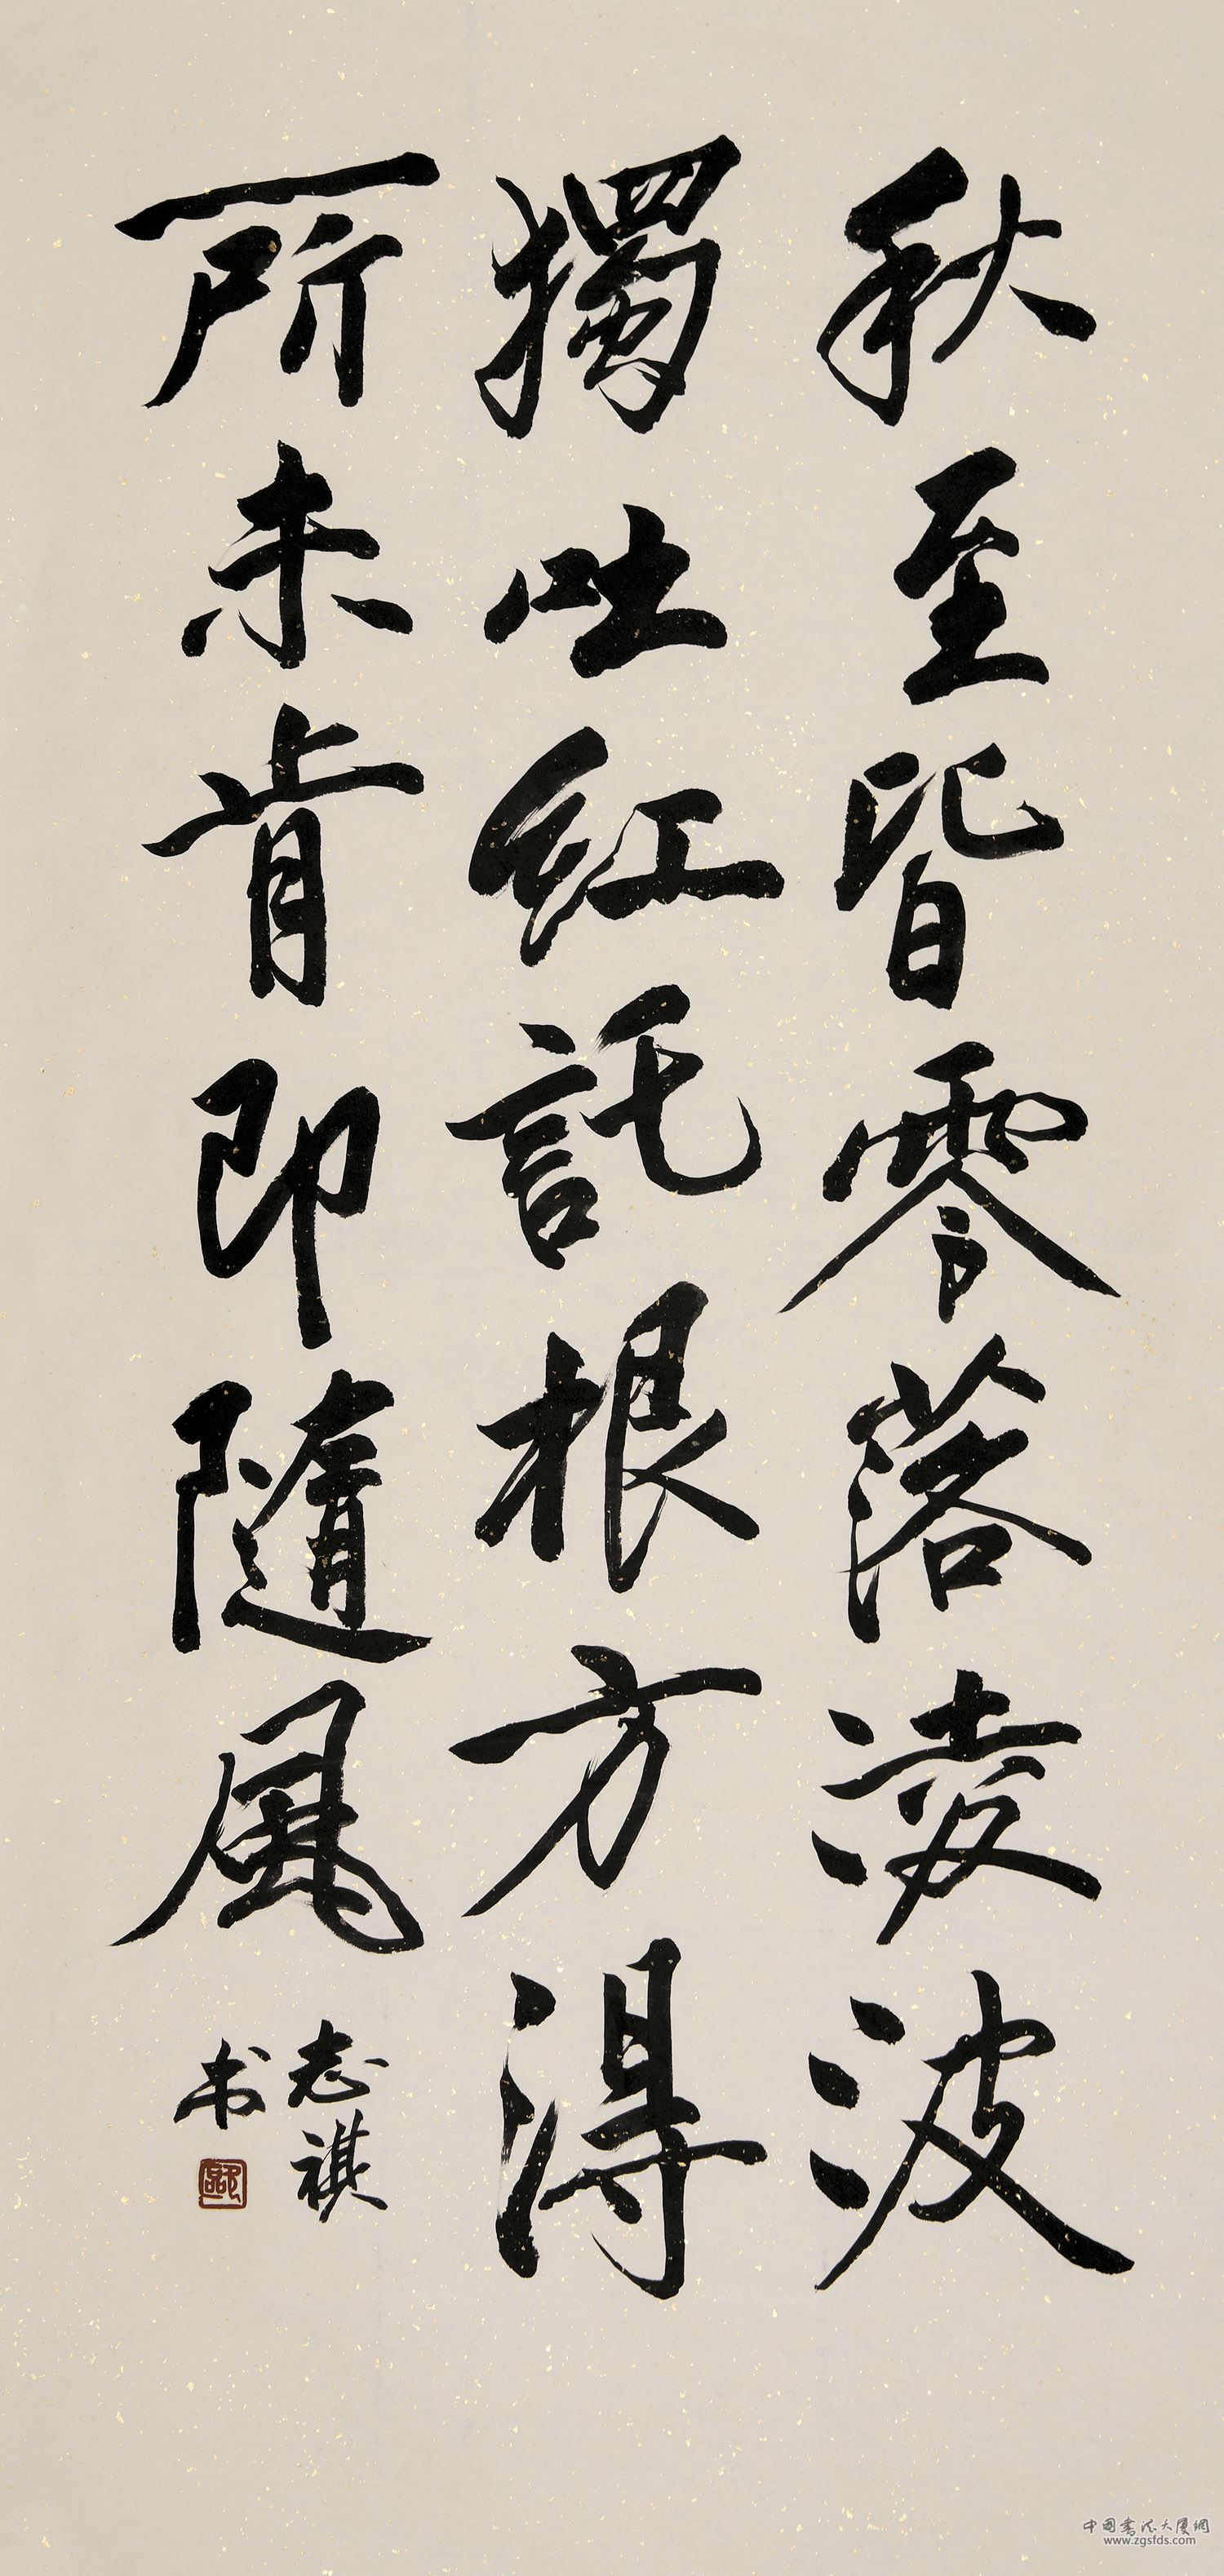 秋至皆零落淩波
獨吐紅託根方得
所未肯即隨風
志祺
书
中国书法大厦網
www.zgsfds.com